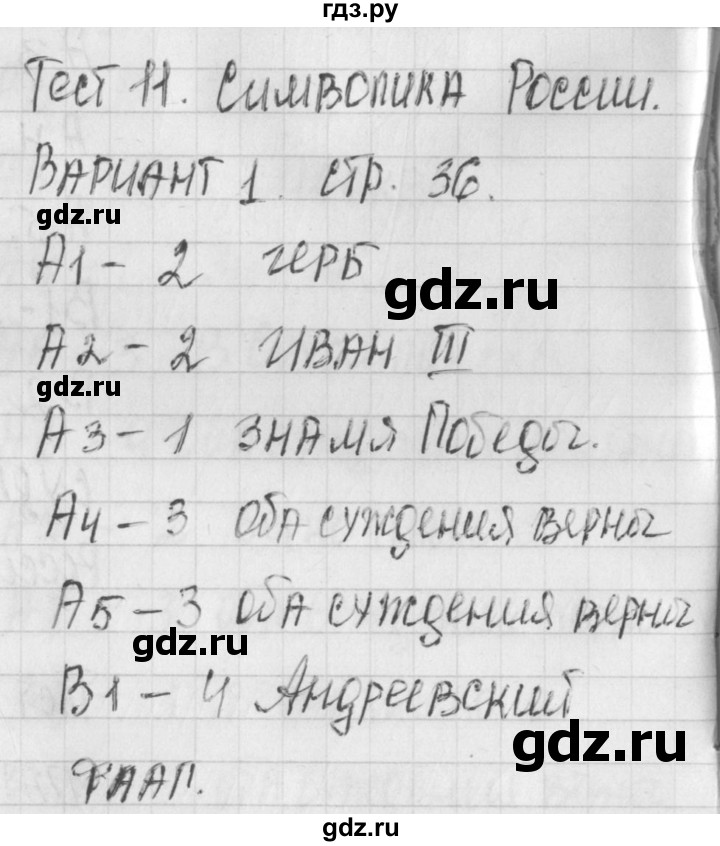 гдз.ру
Тест 11. Символика России.
Вариант 1. стр. 36.
gdz.ru
А1 - 2 герб
gdz.ru
А2 - 2 Иван III
gdz.ru
А3 - 1 знамя Победы.
А4 - 3 оба суждения верны
А5 - 3 оба суждения верны
gdz.ru
В1 - 4 Андреевский
gdz.ru
флаг.
gdz.ru